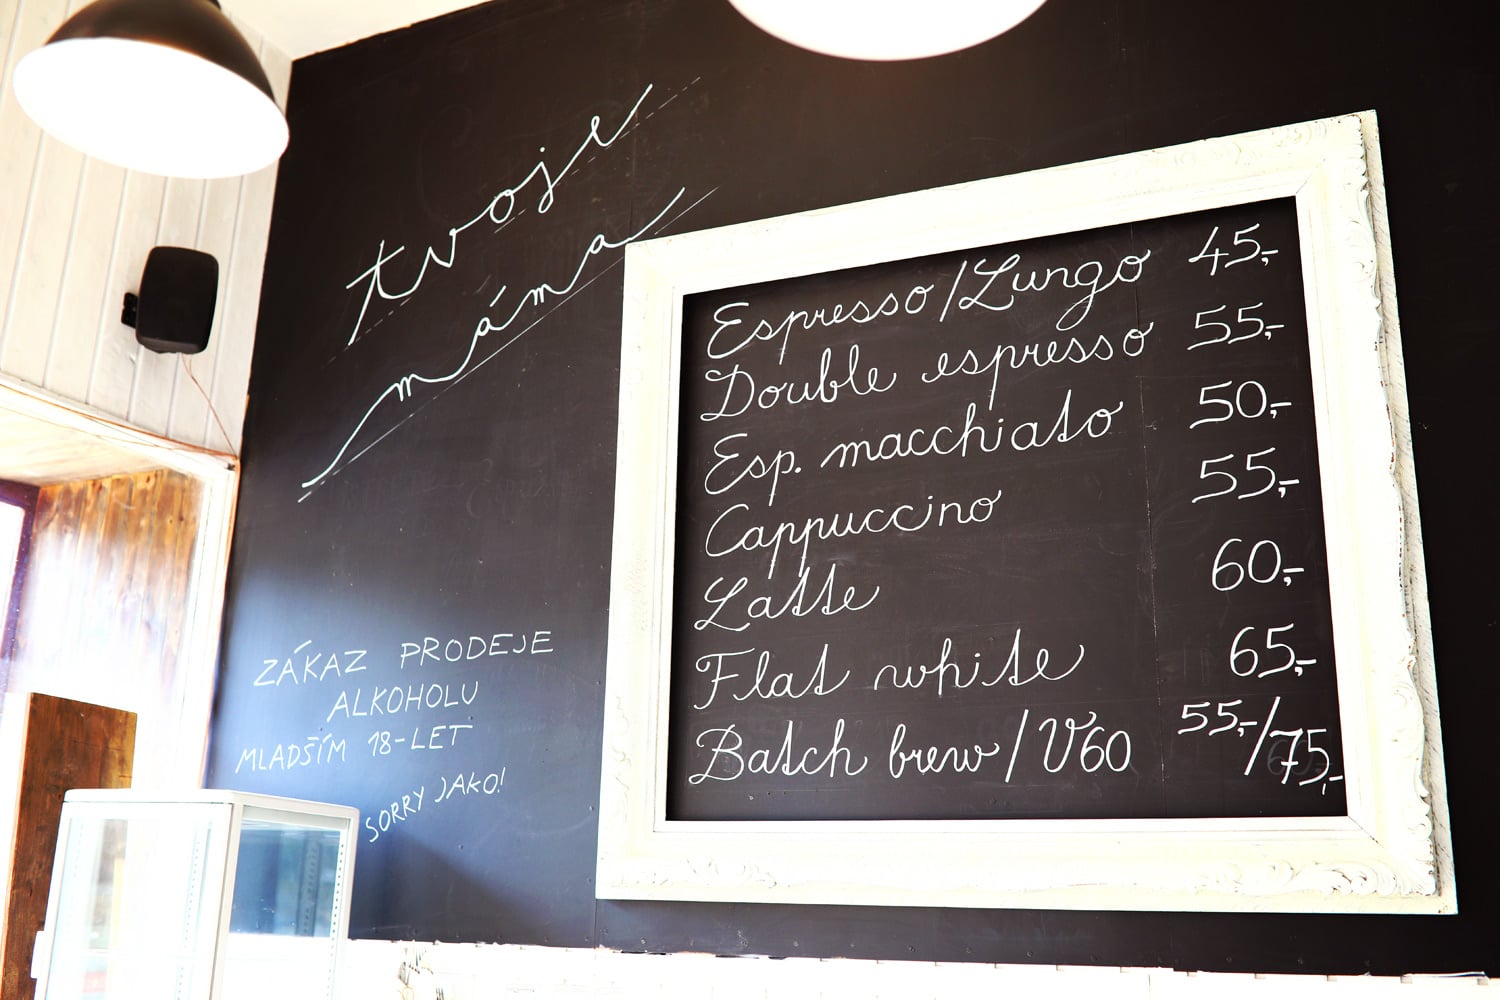 tvoje
máma
ZÁKAZ PRODEJE
ALKOHOLU
MLADŠÍM 18-LET
SORRY JAKO!
Espresso/Lungo 45,-
Double espresso 55,-
Esp. macchiato 50,-
Cappuccino 55,-
Latte 60,-
Flat white 65,-
Batch brew/V60 55,-/75,-